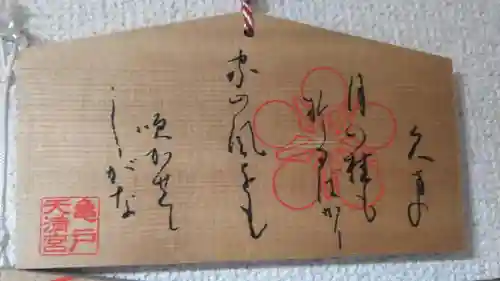 久方の
月の桂も
折るはかり
家の風をも
吹かせて
しがな
亀戸
天満宮